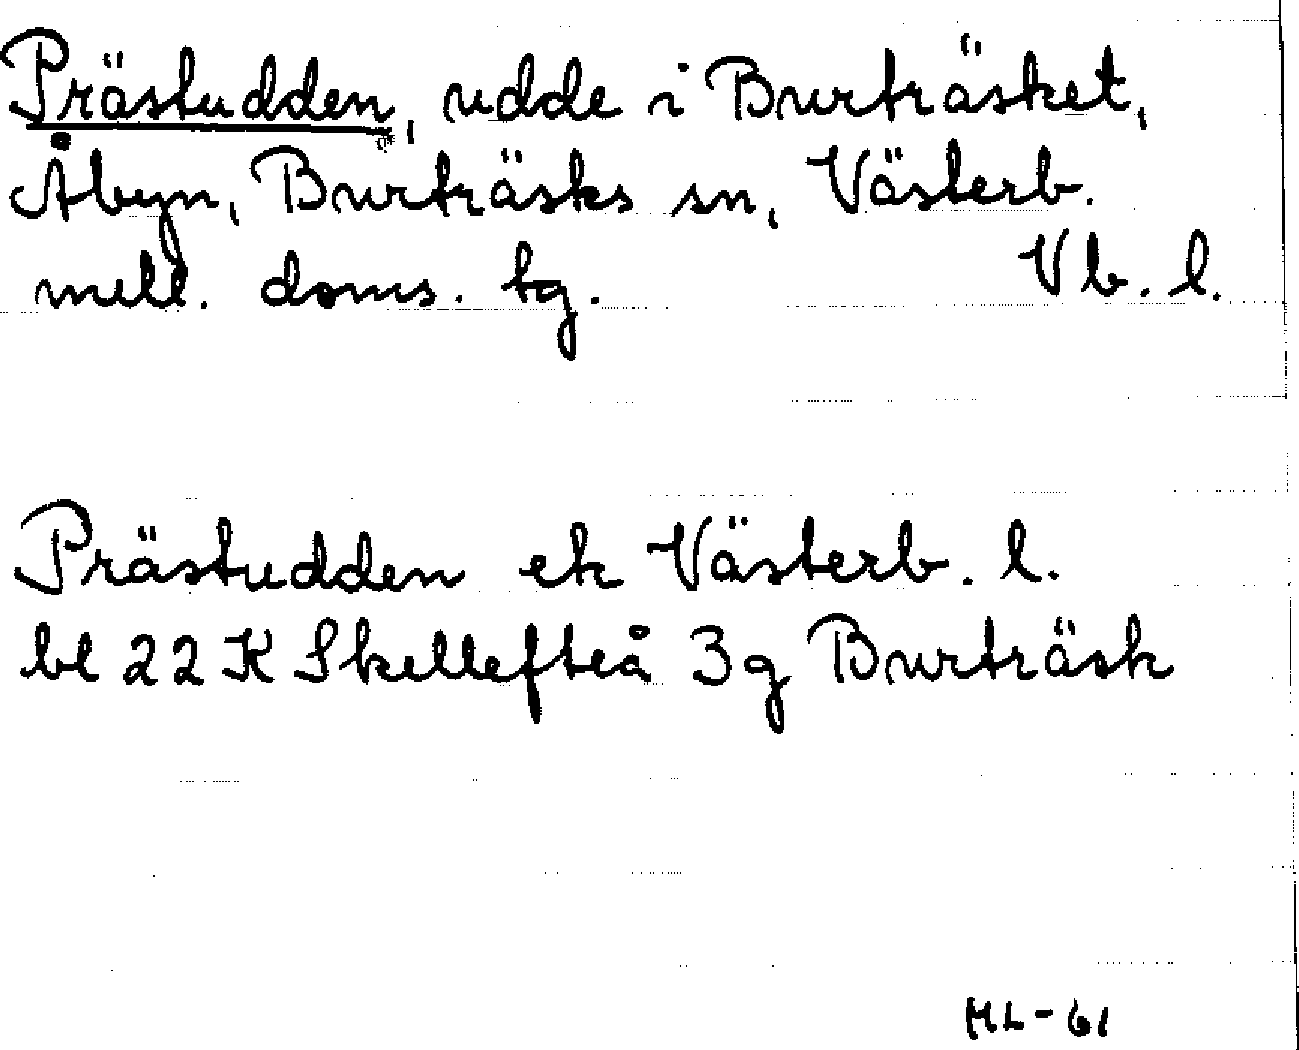 Prästudden, udde i Burträsket,
Åbyn, Burträsks sn, Västerb.
mell. doms. tg. Vb. l.
Prästudden ek Västerb. l.
bl 22 K Skellefteå 3g Burträsk
HL-61